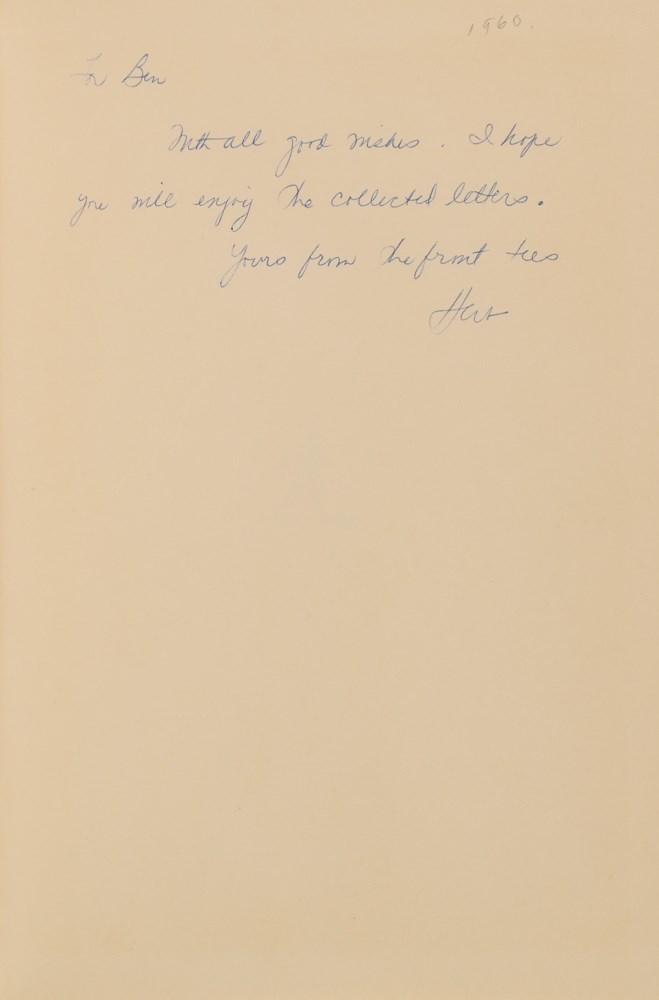 1960.
For Ben
With all good wishes. I hope
you will enjoy the collected letters.
Yours from the front tees
Herb